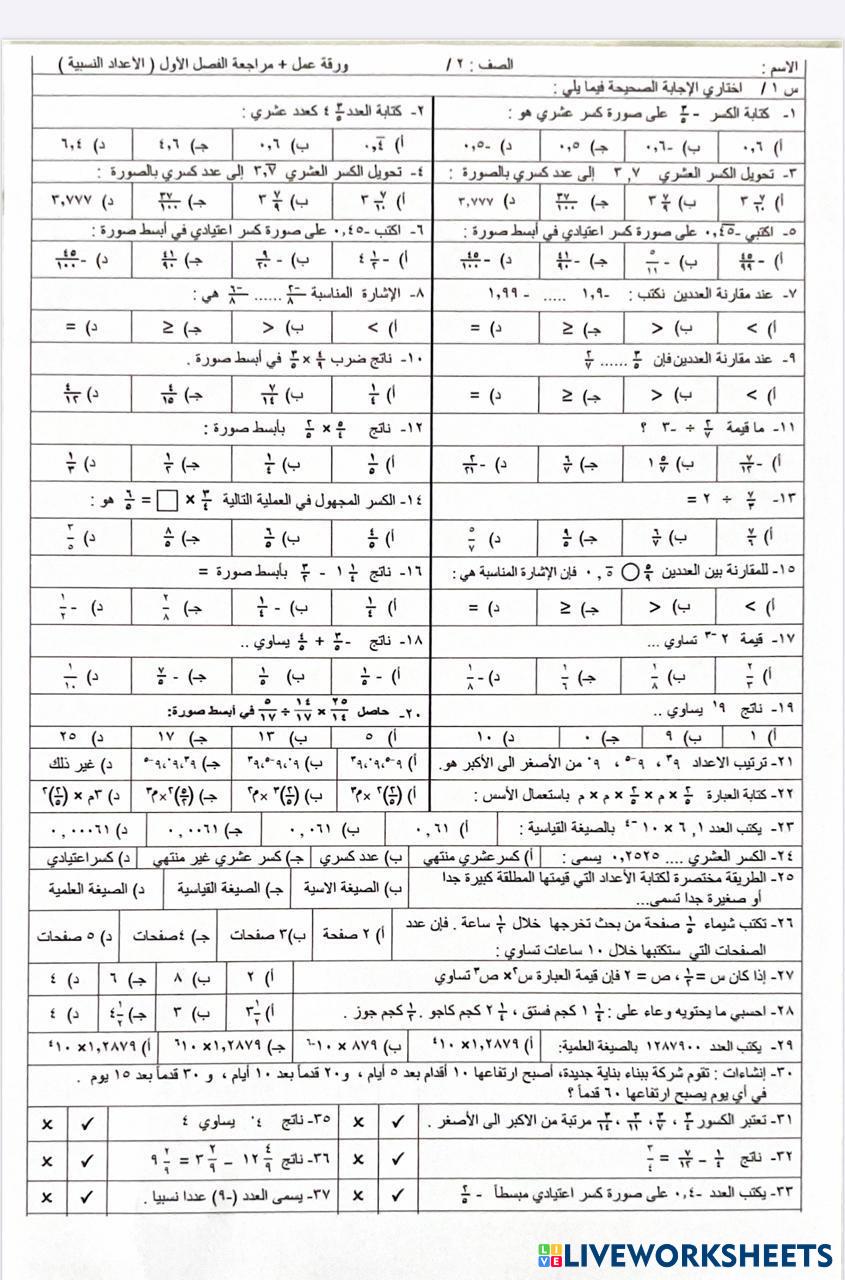 الاسم : الصف : ٢ / ورقة عمل + مراجعة الفصل الأول ( الأعداد النسبية )
س ١ / اختاري الإجابة الصحيحة فيما يلي :
١- كتابة الكسر - ٣/٥ على صورة كسر عشري هو :
أ) ٠,٦ ب) -٠,٦ جـ) ٠,٥ د) -٠,٥
٢- كتابة العدد ٣/٥ ٤ كعدد عشري :
أ) ٠,٤̅ ب) ٠,٦ جـ) ٤,٦ د) ٦,٤
٣- تحويل الكسر العشري ٣,٧ إلى عدد كسري بالصورة :
أ) ٧/١٠ ٣ ب) ٧/٩ ٣ جـ) ٣٧/١٠٠ د) ٣,٧٧٧
٤- تحويل الكسر العشري ٣,٧̅ إلى عدد كسري بالصورة :
أ) ٧/١٠ ٣ ب) ٧/٩ ٣ جـ) ٣٧/١٠٠ د) ٣,٧٧٧
٥- اكتبي -٠,٤٥̅ على صورة كسر اعتيادي في أبسط صورة :
أ) - ٤٥/٩٩ ب) - ٥/١١ جـ) - ٤١/٩٠ د) - ٤٥/١٠٠
٦- اكتب -٠,٤٥ على صورة كسر اعتيادي في أبسط صورة :
أ) - ١/٢ ٤ ب) - ٩/٢٠ جـ) ٤١/٩٠ د) - ٤٥/١٠٠
٧- عند مقارنة العددين نكتب : -١,٩ ..... - ١,٩٩
أ) > ب) < جـ) ≤ د) =
٨- الإشارة المناسبة -٢/٨ ...... -٦/٨ هي :
أ) > ب) < جـ) ≤ د) =
٩- عند مقارنة العددين فإن ٣/٥ ...... ٢/٧
أ) > ب) < جـ) ≤ د) =
١٠- ناتج ضرب ٤/٩ × ٣/٥ في أبسط صورة .
أ) ١/٤ ب) ٧/١٤ جـ) ٤/١٥ د) ٤/١٢
١١- ما قيمة ٢/٧ ÷ -٣ ؟
أ) - ٧/١٢ ب) ٥/٧ ١ جـ) ٦/٧ د) - ٢/٢١
١٢- ناتج ٥/٤ × ٢/٥ بأبسط صورة :
أ) ١/٥ ب) ١/٤ جـ) ١/٢ د) ١/٣
١٣- ٧/٣ ÷ ٢ =
أ) ٧/٦ ب) ٦/٧ جـ) ٩/٥ د) ٥/٧
١٤- الكسر المجهول في العملية التالية ٣/٤ × □ = ٦/٥ هو :
أ) ٤/٥ ب) ٦/٥ جـ) ٨/٥ د) ٣/٥
١٥- للمقارنة بين العددين ٥/٩ ○ ٠,٥̅ فإن الإشارة المناسبة هي :
أ) > ب) < جـ) ≤ د) =
١٦- ناتج ١/٤ ١ - ٣/٢ بأبسط صورة =
أ) ١/٤ ب) - ١/٤ جـ) ٢/٨ د) - ١/٢
١٧- قيمة ٢⁻³ تساوي ...
أ) ٢/٣ ب) ١/٨ جـ) ١/٦ د) - ١/٨
١٨- ناتج - ٣/٥ + ٤/٥ يساوي ..
أ) - ١/٥ ب) ١/٥ جـ) - ٧/٥ د) ١/١٠
١٩- ناتج ٩¹ يساوي ..
أ) ١ ب) ٩ جـ) ٠ د) ١٠
٢٠- حاصل ٢٥/١٤ × ١٤/١٧ ÷ ٥/١٧ في أبسط صورة:
أ) ٥ ب) ١٣ جـ) ١٧ د) ٢٥
٢١- ترتيب الاعداد ٩³ ، ٩⁻⁵ ، ٩⁰ من الأصغر الى الأكبر هو.
أ) ٩⁻⁵،٩⁰،٩³ ب) ٩⁰،٩⁻⁵،٩³ جـ) ٩³،٩⁰،٩⁻⁵ د) غير ذلك
٢٢- كتابة العبارة ٢/٥ × م × ٢/٥ × م × م باستعمال الأسس :
أ) (٢/٥)² × م³ ب) (٢/٥)³ × م² جـ) (٥/٢)² × م³ د) ٣م × (٢/٥)²
٢٣- يكتب العدد ٦,١ × ١٠⁻⁴ بالصيغة القياسية :
أ) ٠,٦١ ب) ٠,٠٦١ جـ) ٠,٠٠٦١ د) ٠,٠٠٠٦١
٢٤- الكسر العشري .... ٠,٢٥٢٥ يسمى :
أ) كسر عشري منتهي ب) عدد كسري جـ) كسر عشري غير منتهي د) كسر اعتيادي
٢٥- الطريقة مختصرة لكتابة الأعداد التي قيمتها المطلقة كبيرة جدا
أو صغيرة جدا تسمى...
ب) الصيغة الاسية جـ) الصيغة القياسية د) الصيغة العلمية
٢٦- تكتب شيماء ١/٥ صفحة من بحث تخرجها خلال ١/٢ ساعة . فإن عدد
الصفحات التي ستكتبها خلال ١٠ ساعات تساوي :
أ) ٢ صفحة ب) ٣ صفحات جـ) ٤ صفحات د) ٥ صفحات
٢٧- إذا كان س = ١/٢ ، ص = ٢ فإن قيمة العبارة س² × ص³ تساوي
أ) ٢ ب) ٨ جـ) ٦ د) ٤
٢٨- احسبي ما يحتويه وعاء على : ١/٤ ١ كجم فستق ، ١/٤ ٢ كجم كاجو . ١/٢ كجم جوز .
أ) ١/٢ ٣ ب) ٣ جـ) ١/٢ ٤ د) ٤
٢٩- يكتب العدد ١٢٨٧٩٠٠ بالصيغة العلمية:
أ) ١,٢٨٧٩×١٠⁴ ب) ٨٧٩ × ١٠⁻⁶ جـ) ١,٢٨٧٩×١٠⁶ أ) ١,٢٨٧٩×١٠⁴
٣٠- إنشاءات : تقوم شركة ببناء بناية جديدة، أصبح ارتفاعها ١٠ أقدام بعد ٥ أيام ، و ٢٠ قدماً بعد ١٠ أيام ، و ٣٠ قدماً بعد ١٥ يوم .
في أي يوم يصبح ارتفاعها ٦٠ قدماً ؟
٣١- تعتبر الكسور ٣/٤ ، ٣/٧ ، ٣/١٢ ، ٣/١٤ مرتبة من الاكبر الى الأصغر . ✓ ×
٣٥- ناتج ٤⁰ يساوي ٤ ✓ ×
٣٢- ناتج ١/٤ - ٧/١٢ = ٣/٤ ✓ ×
٣٦- ناتج ٤/٩ ١٢ - ٢/٩ ٣ = ٢/٩ ٩ ✓ ×
٣٣- يكتب العدد -٠,٤ على صورة كسر اعتيادي مبسطاً - ٢/٥ ✓ ×
٣٧- يسمى العدد (-٩) عددا نسبيا . ✓ ×
LIVEWORKSHEETS